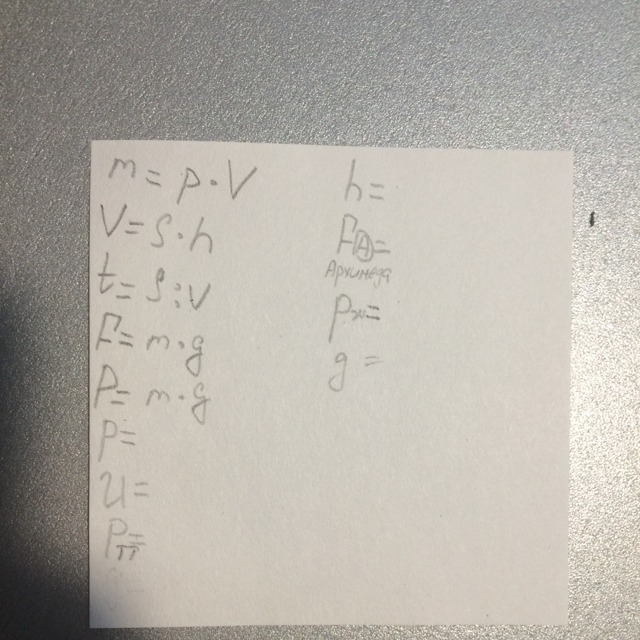 m = p · V
V = S · h
t = S : v
F = m · g
P = m · g
p =
U =
Pт =
h =
FA =
Архимеда
pж =
g =